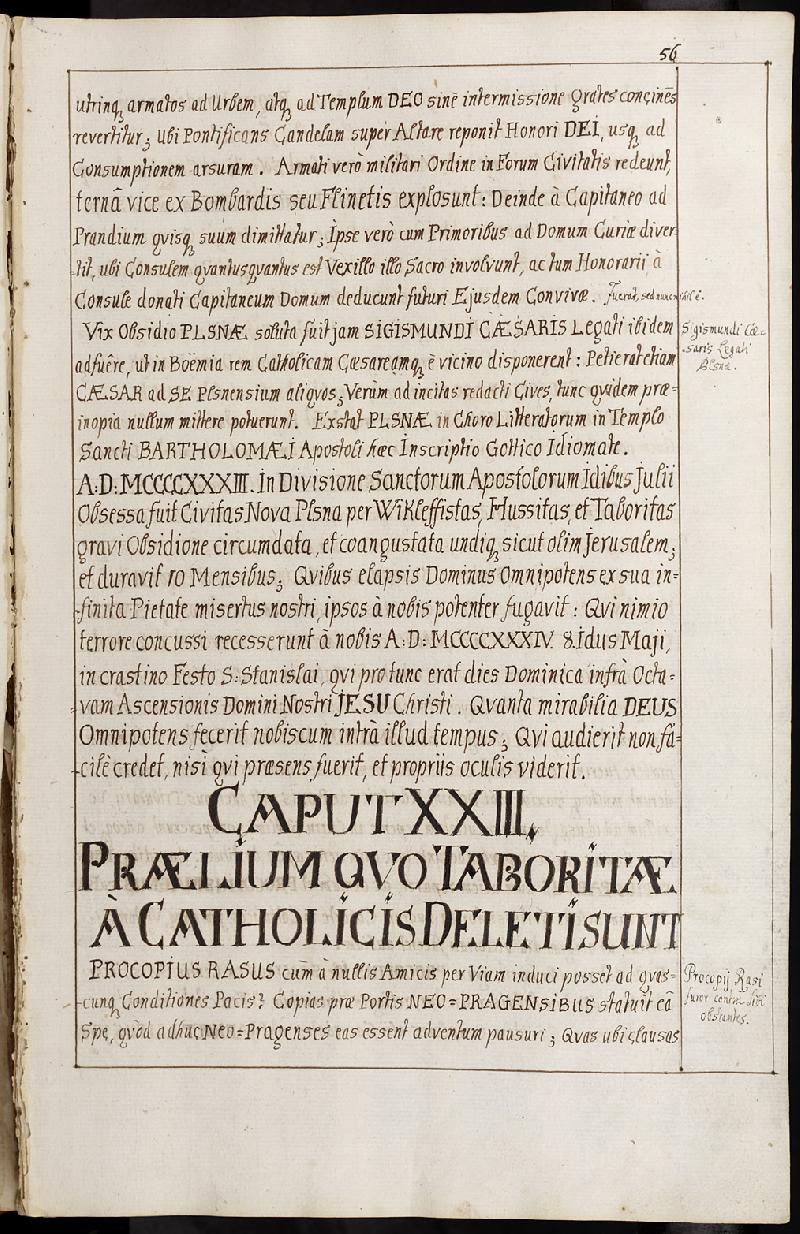 56
utrinq₃ armatos ad Urbem, atq₃ ad Templum DEO sinè intermissione Grates concinẽs
revertitur; ubi Pontificans Candelam super Altare reponit Honori DEI, usq₃ ad
Consumptionem arsuram. Armati verò militari Ordine in Forum Civitatis redeunt,
ternâ vice ex Bombardis seu Flinetis explosunt: Deinde à Capitaneo ad
Prandium qvisq₃ suum dimittatur; Ipse verò cum Primoribus ad Domum Curiæ diver
tit, ubi Consulem qvantusqvantus est Vexillo illo Sacro involvunt, ac tum Honorarii à
Consule donati Capitaneum Domum deducunt futuri Ejusdem Convivæ. fuerat, sed nunc
Vix Obsidio PLSNÆ soluta fuit jam SIGISMUNDI CÆSARIS Legati ibidem
adfuêre, ut in Boëmia rem Catholicam Cæsareamq₃ è vicino disponerent: Petierat etiam
CÆSAR ad SE Plsnensium aliqvos; Verùm ad incitas redacti Cives, tunc qvidem præ=
inopia nullum mittere potuerunt. Exstat PLSNÆ in Choro Litteratorum in Templo
Sancti BARTHOLOMÆI Apostoli hæc Inscriptio Gottico Idiomate.
A:D:MCCCCXXXIII. In Divisione Sanctorum Apostolorum Idibus Julii
Obsessa fuit Civitas Nova Plsna per Wikleffistas, Hussitas, et Taboritas
gravi Obsidione circumdata, et coangustata undiq₃ sicut olim Jerusalem;
et duravit 10 Mensibus; Qvibus elapsis Dominus Omnipotens ex sua in=
finita Pietate misertus nostri, ipsos à nobis potenter fugavit: Qvi nimio
terrore concussi recesserunt à nobis A:D:MCCCCXXXIV. 8. Idus Maji,
in crastino Festo S: Stanislai, qvi pro tunc erat dies Dominica infrà Octa=
vam Ascensionis Domini Nostri JESU Christi. Qvanta mirabilia DEUS
Omnipotens fecerit nobiscum intrà illud tempus; Qvi audierit non fa=
cilè credet, nisi qvi præsens fuerit, et propriis oculis viderit.
CAPUT XXIII.
PRÆLIUM QVO TABORITÆ
À CATHOLICIS DELETI SUNT
PROCOPIUS RASUS cum à nullis Amicis per Viam induci posset ad qvas=
cunq₃ Conditiones Pacis? Copias præ Portis NEO=PRAGENSIBUS statuit eâ
Spe, qvòd adhuc Neo=Pragenses eas essent adventum pausuri; Qvas ubi clausas
Sigismundi Cæ=
saris Legati
Plsnæ.
Procopij Rasi
furor contra sibi
obstantes.